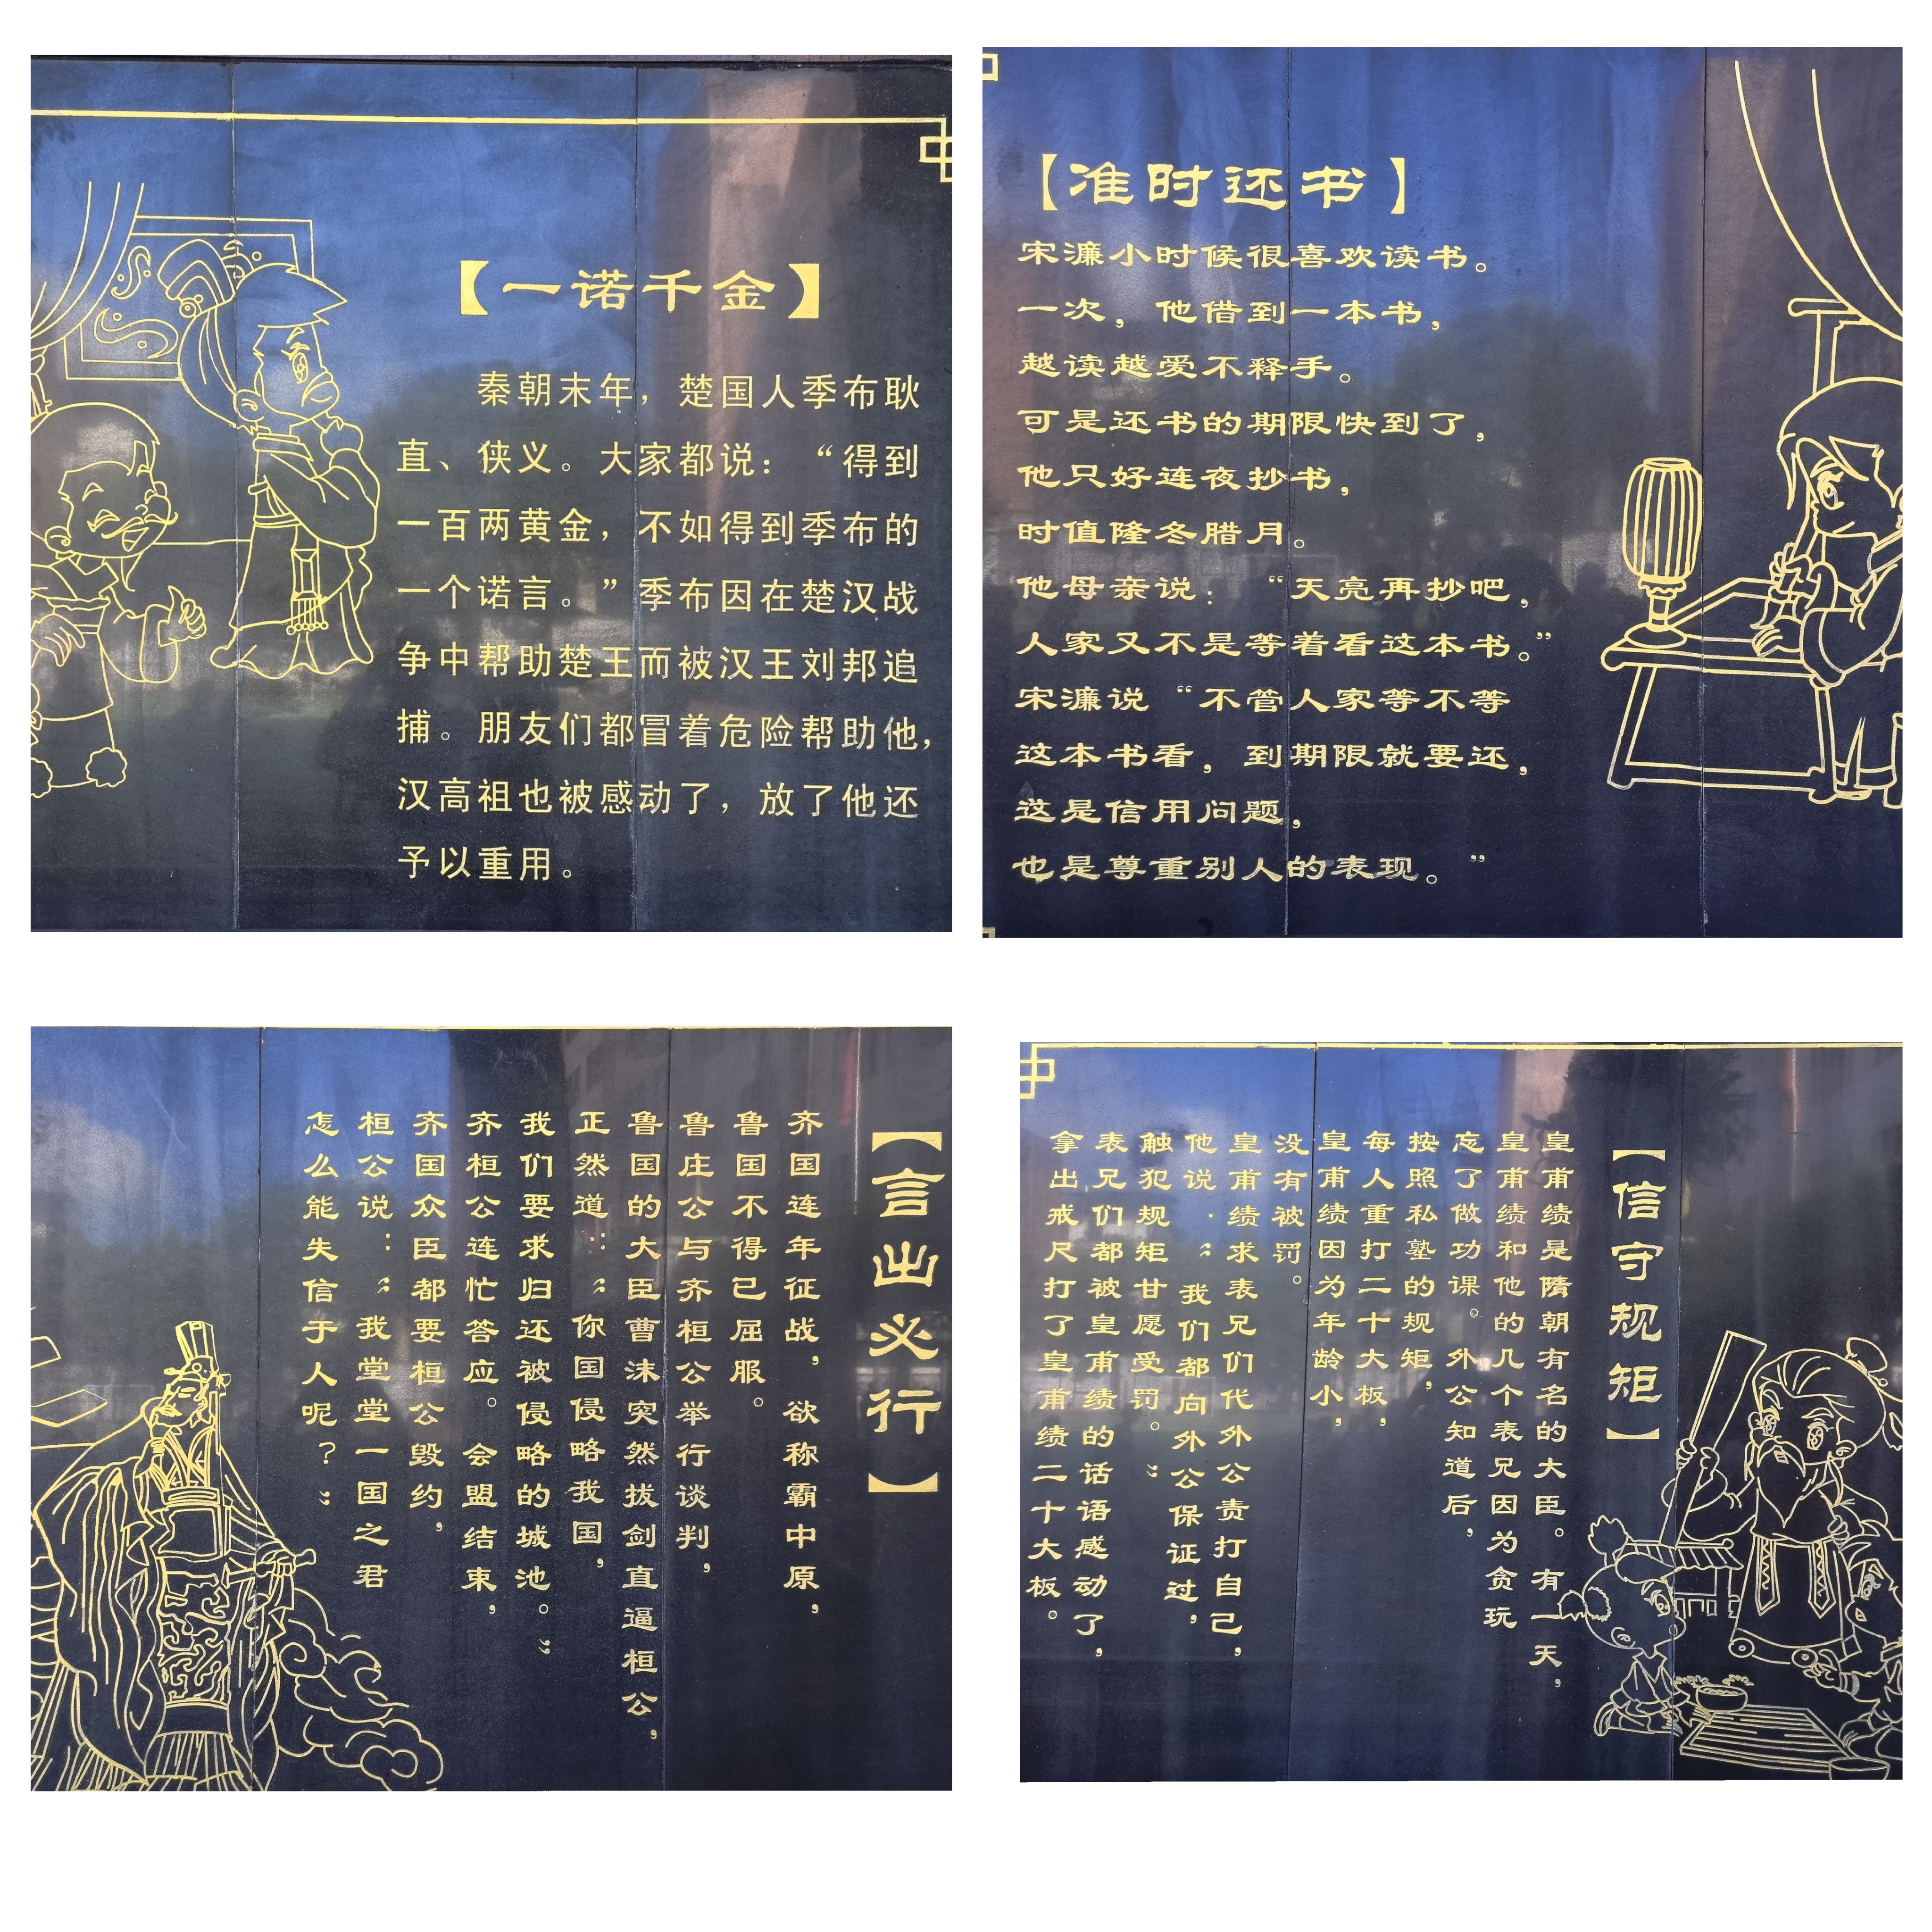 【一诺千金】
秦朝末年，楚国人季布耿
直、侠义。大家都说：“得到
一百两黄金，不如得到季布的
一个诺言。”季布因在楚汉战
争中帮助楚王而被汉王刘邦追
捕。朋友们都冒着危险帮助他，
汉高祖也被感动了，放了他还
予以重用。
【准时还书】
宋濂小时候很喜欢读书。
一次，他借到一本书，
越读越爱不释手。
可是还书的期限快到了，
他只好连夜抄书，
时值隆冬腊月。
他母亲说：“天亮再抄吧，
人家又不是等着看这本书。”
宋濂说“不管人家等不等
这本书看，到期限就要还，
这是信用问题，
也是尊重别人的表现。”
【言出必行】
齐国连年征战，欲称霸中原，
鲁国不得已屈服。
鲁庄公与齐桓公举行谈判，
鲁国的大臣曹沫突然拔剑直逼桓公，
正然道：“你国侵略我国，
我们要求归还被侵略的城池。”
齐桓公连忙答应。会盟结束，
齐国众臣都要桓公毁约，
桓公说：“我堂堂一国之君
怎么能失信于人呢？”
【信守规矩】
皇甫绩是隋朝有名的大臣。有一天，
皇甫绩和他的几个表兄因为贪玩
忘了做功课。外公知道后，
按照私塾的规矩，
每人重打二十大板，
皇甫绩因为年龄小，
没有被罚。
皇甫绩求表兄们代外公责打自己，
他说：“我们都向外公保证过，
触犯规矩甘愿受罚。”
表兄们都被皇甫绩的话语感动了，
拿出戒尺打了皇甫绩二十大板。